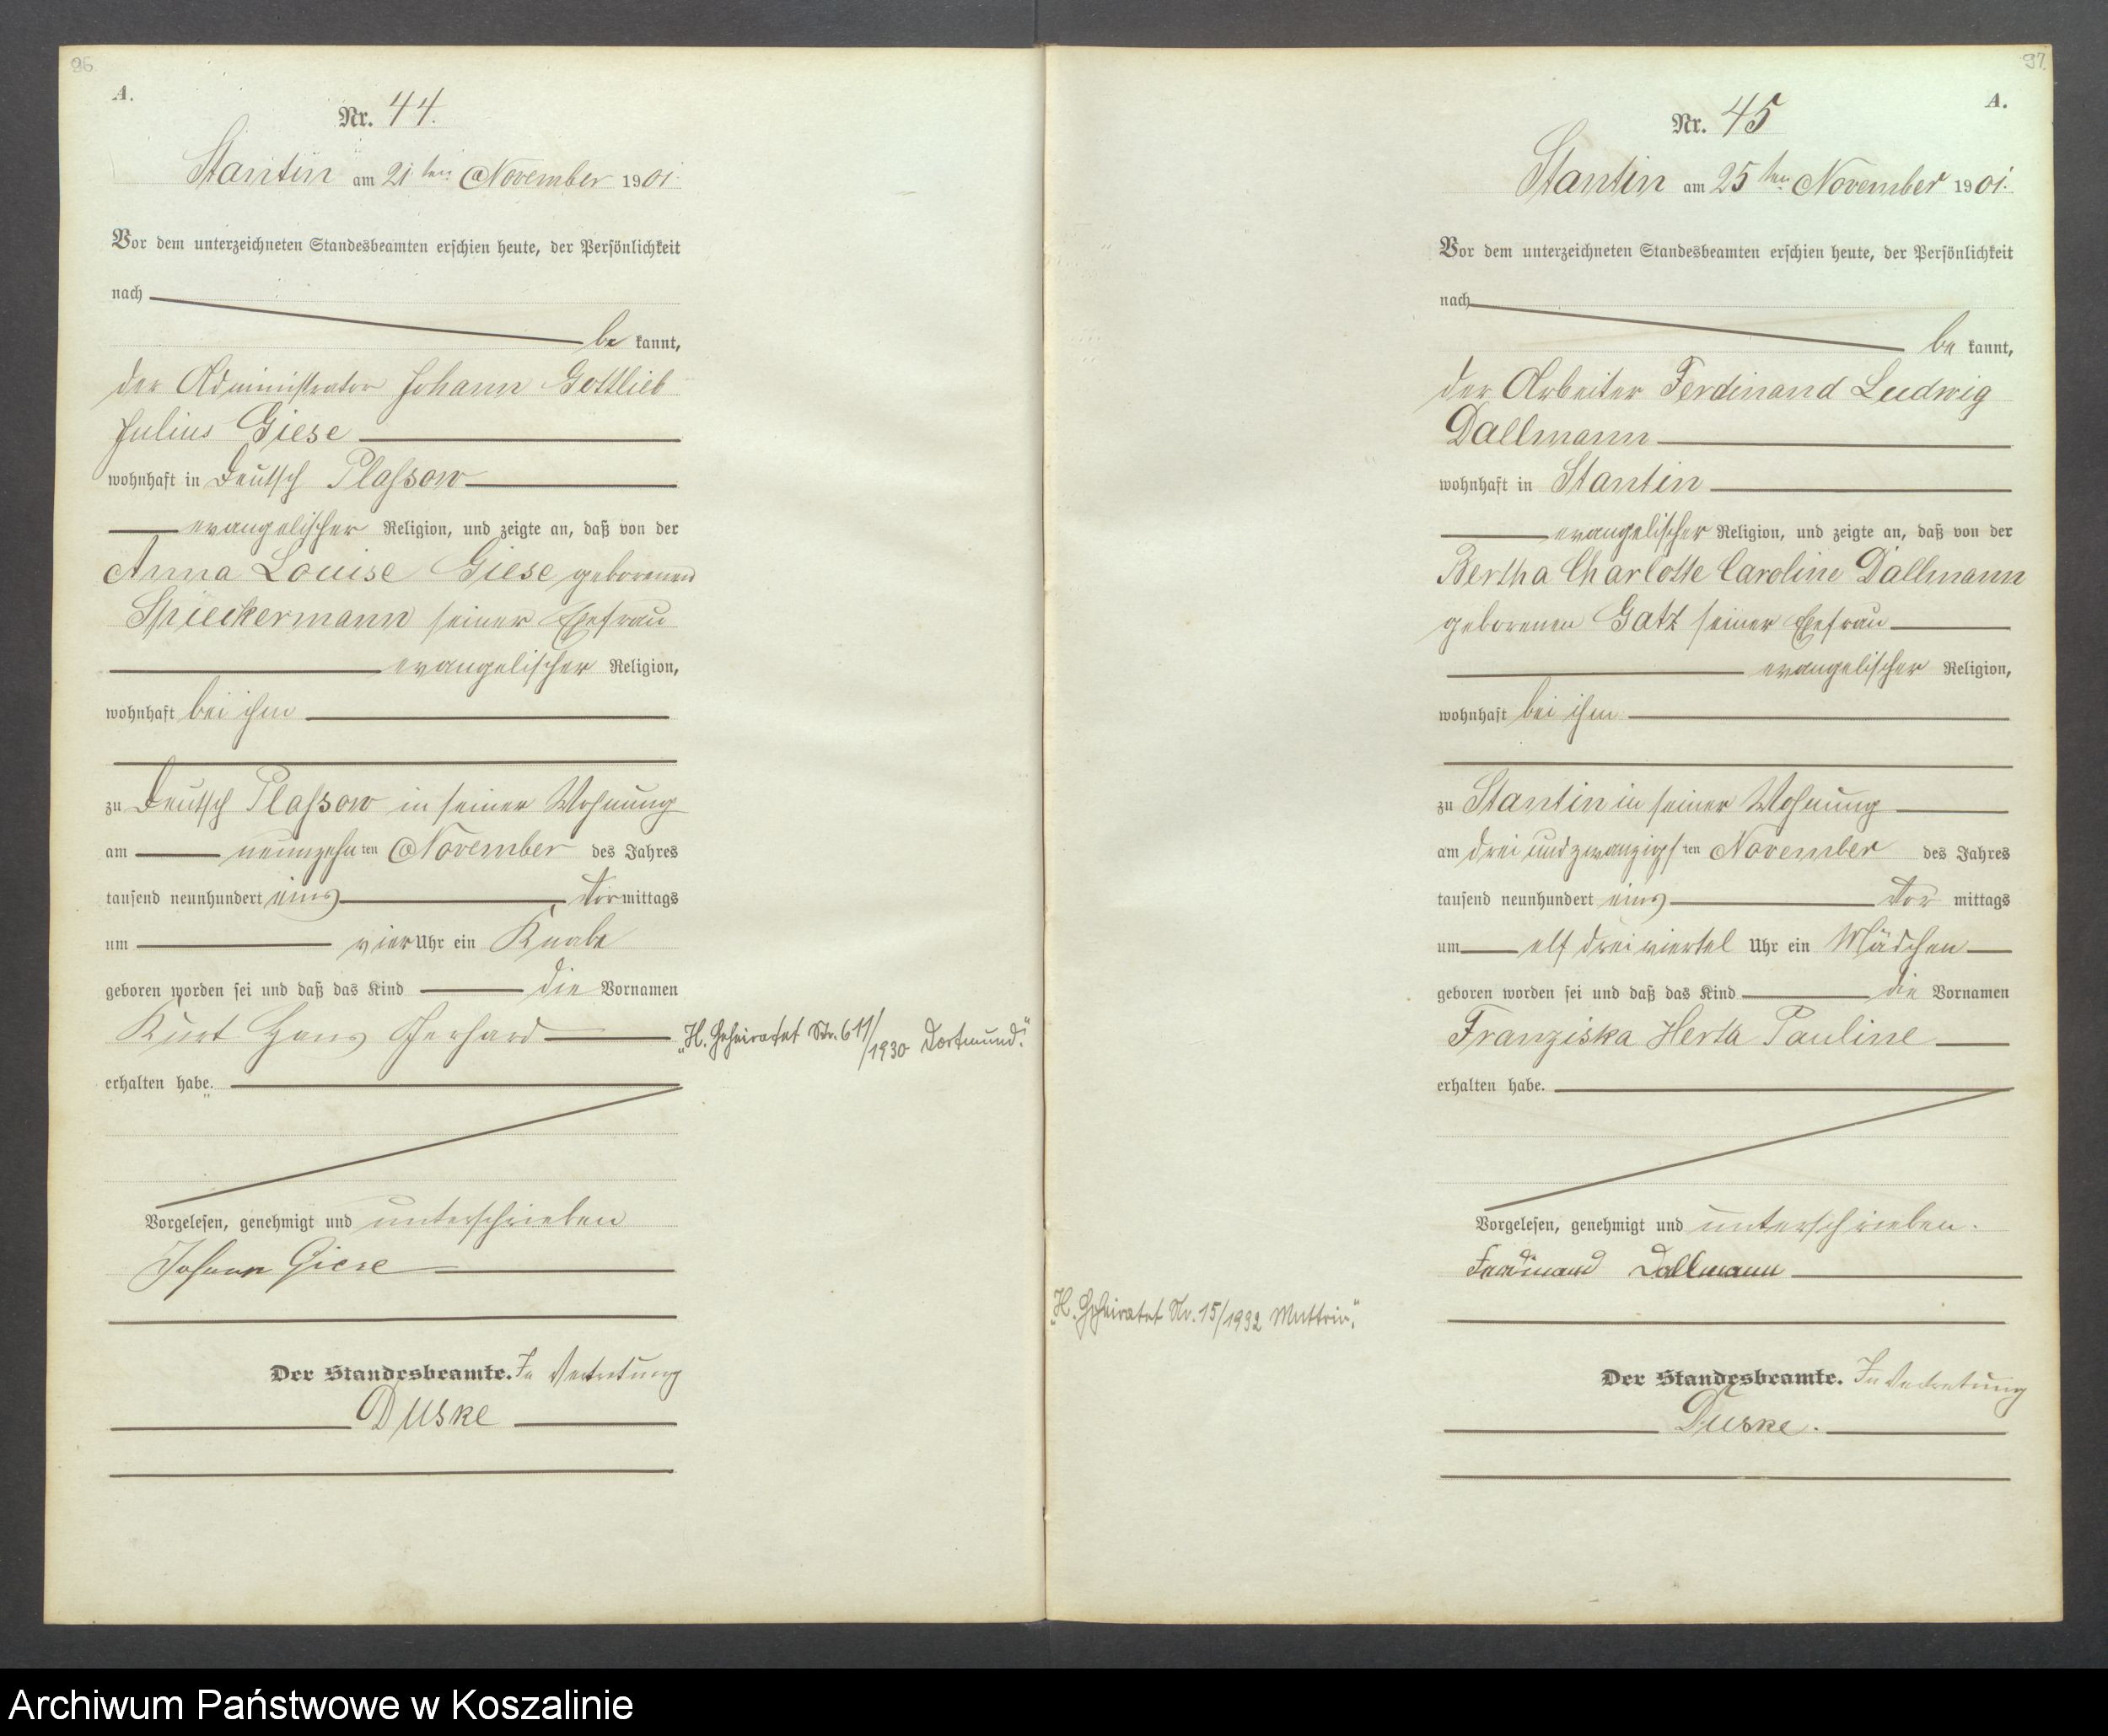 96.
A.
Nr. 44.
Stantin am 21ten November 1901.
Vor dem unterzeichneten Standesbeamten erschien heute, der Persönlichkeit
nach
be kannt,
der Administrator Johann Gottlieb
Julius Giese
wohnhaft in Deutsch Plassow
evangelischer Religion, und zeigte an, daß von der
Anna Louise Giese geborenen
Spieckermann seiner Ehefrau
evangelischer Religion,
wohnhaft bei ihm
zu Deutsch Plassow in seiner Wohnung
am neunzehnten November des Jahres
tausend neunhundert eins Vormittags
um vier Uhr ein Knabe
geboren worden sei und daß das Kind die Vornamen
Kurt Hans Gerhard
erhalten habe.
„H. Geheiratet Nr. 611/1930 Dortmund."
Vorgelesen, genehmigt und unterschrieben
Johann Giese
Der Standesbeamte. In Vertretung
Duske
97.
A.
Nr. 45
Stantin am 25ten November 1901.
Vor dem unterzeichneten Standesbeamten erschien heute, der Persönlichkeit
nach
be kannt,
der Arbeiter Ferdinand Ludwig
Dallmann
wohnhaft in Stantin
evangelischer Religion, und zeigte an, daß von der
Bertha Charlotte Caroline Dallmann
geborenen Gatz seiner Ehefrau
evangelischer Religion,
wohnhaft bei ihm
zu Stantin in seiner Wohnung
am dreiundzwanzigsten November des Jahres
tausend neunhundert eins Vor mittags
um elf dreiviertel Uhr ein Mädchen
geboren worden sei und daß das Kind die Vornamen
Franziska Herta Pauline
erhalten habe.
Vorgelesen, genehmigt und unterschrieben.
Ferdinand Dallmann
„H. Geheiratet Nr. 15/1932 Muttrin."
Der Standesbeamte. In Vertretung
Duske.
Archiwum Państwowe w Koszalinie